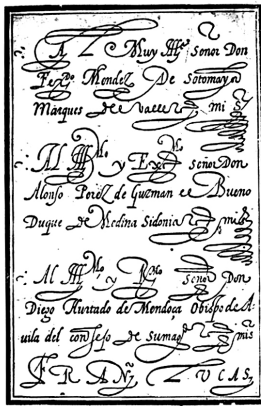 Al Muy Ille Señor Don
Ferdo Mendez De Sotomayor
Marques de Valle mi Sr
Al Illmo y Exmo señor Don
Alonso Perez de Guzman el Bueno
Duque de Medina Sidonia mi Sr
Al Illmo y Rmo Señor Don
Diego Hurtado de Mendoça Obispo de A
uila del consejo de su mag mi s
FRAN LVCAS